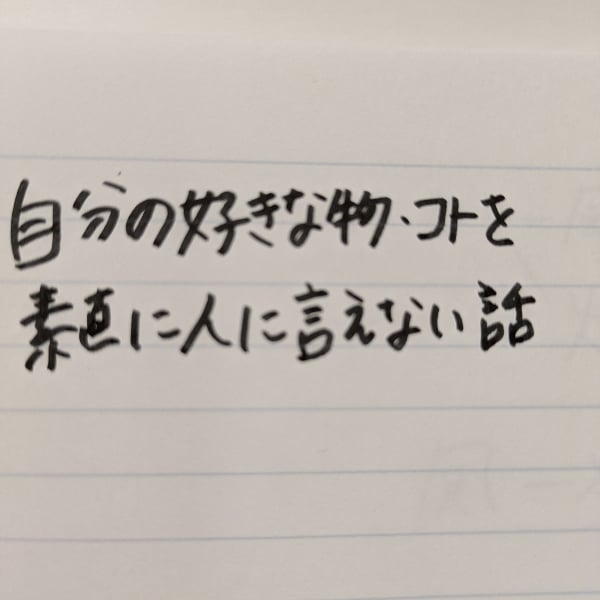 自分の好きな物・コトを
素直に人に言えない話